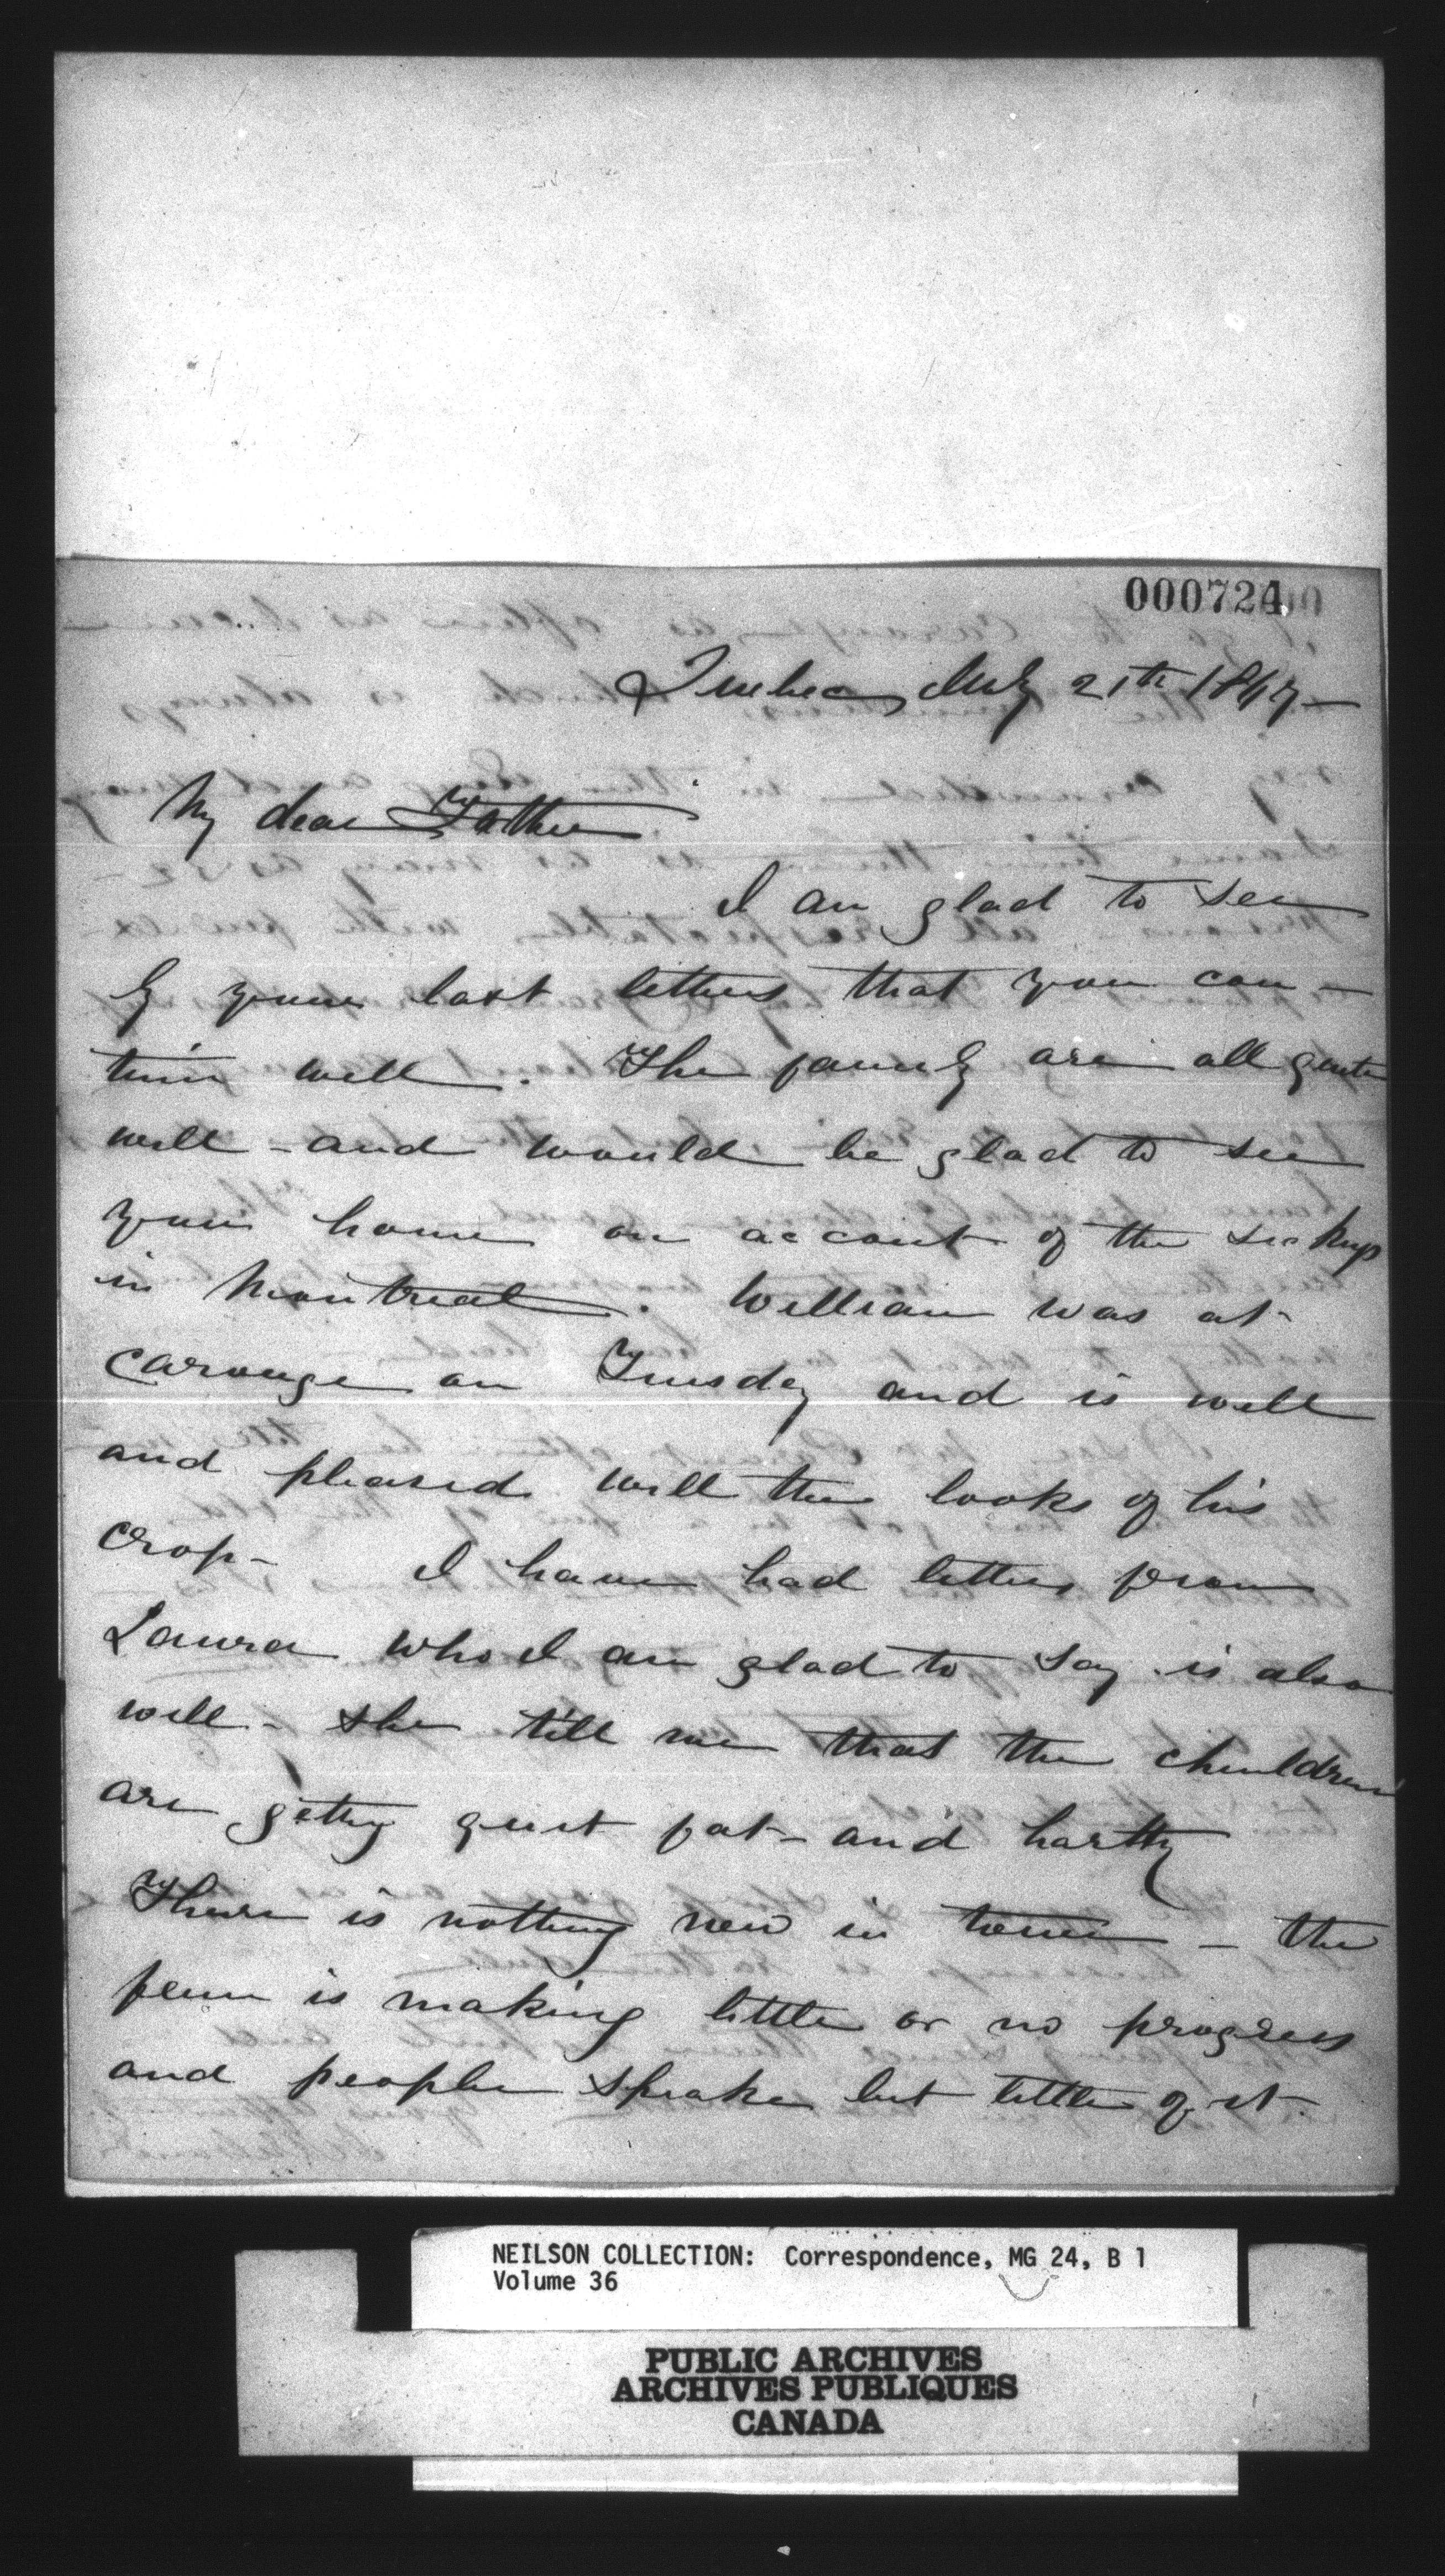 000724
Quebec, July 21th 1847 —
My dear Father
I am glad to see
by your last letters that you con-
tinu well. The family are all quite
well - and would be glad to see
your home on account of the sickness
in Montreal. William was at
Carouge on Tuesday and is well
and pleased will the looks of his
crop - I have had letters from
Laura who I am glad to say is also
well - she tell me that the children
are getting quit fat - and hartty
There is nothing new in town - the
is making little or no progress
and people speake but little of it.
NEILSON COLLECTION: Correspondence, MG 24, B 1
Volume 36
PUBLIC ARCHIVES
ARCHIVES PUBLIQUES
CANADA